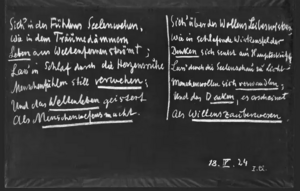 Sieh' in des Fühlens Seelenweben,
Wie in dem Träumedämmern
Leben aus Weltenfernen strömt;
Lass' in Schlaf durch die Herzensruhe
Menschenfühlen still verwehen;
Und das Weltenleben geistert
Als Menschenwesensmacht.
Sieh' über des Wollens Leibeswirken,
Wie in schlafende Wirkensfelder
Denken sich senkt aus Haupteskräften;
Lass' durch die Seelenschau zu Licht
Menschenwollen sich verwandeln;
Und das Denken, es erscheinet
Als Willenszauberwesen.
18. IV. 24